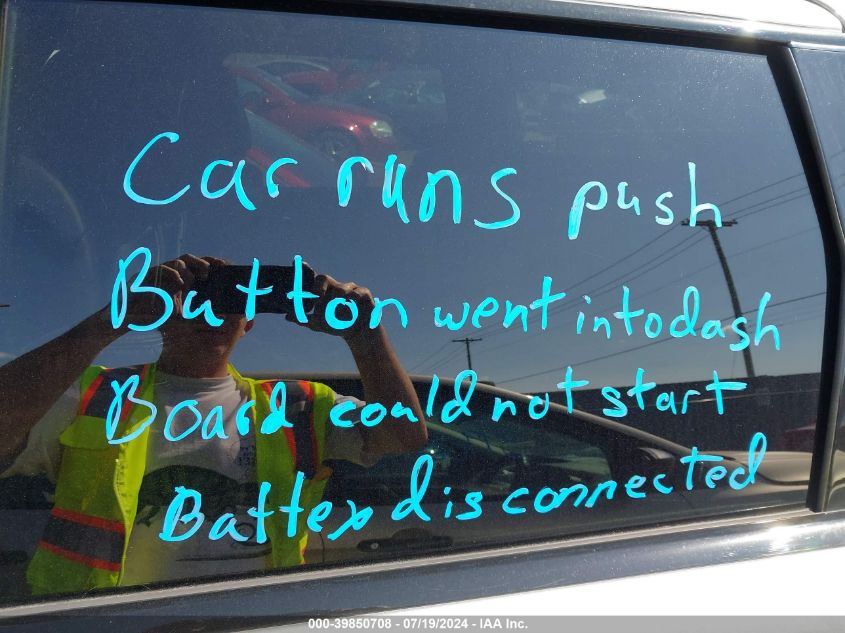 Car runs push
Button went into dash
Board could not start
Battery disconnected
000-39850708 - 07/19/2024 - IAA Inc.